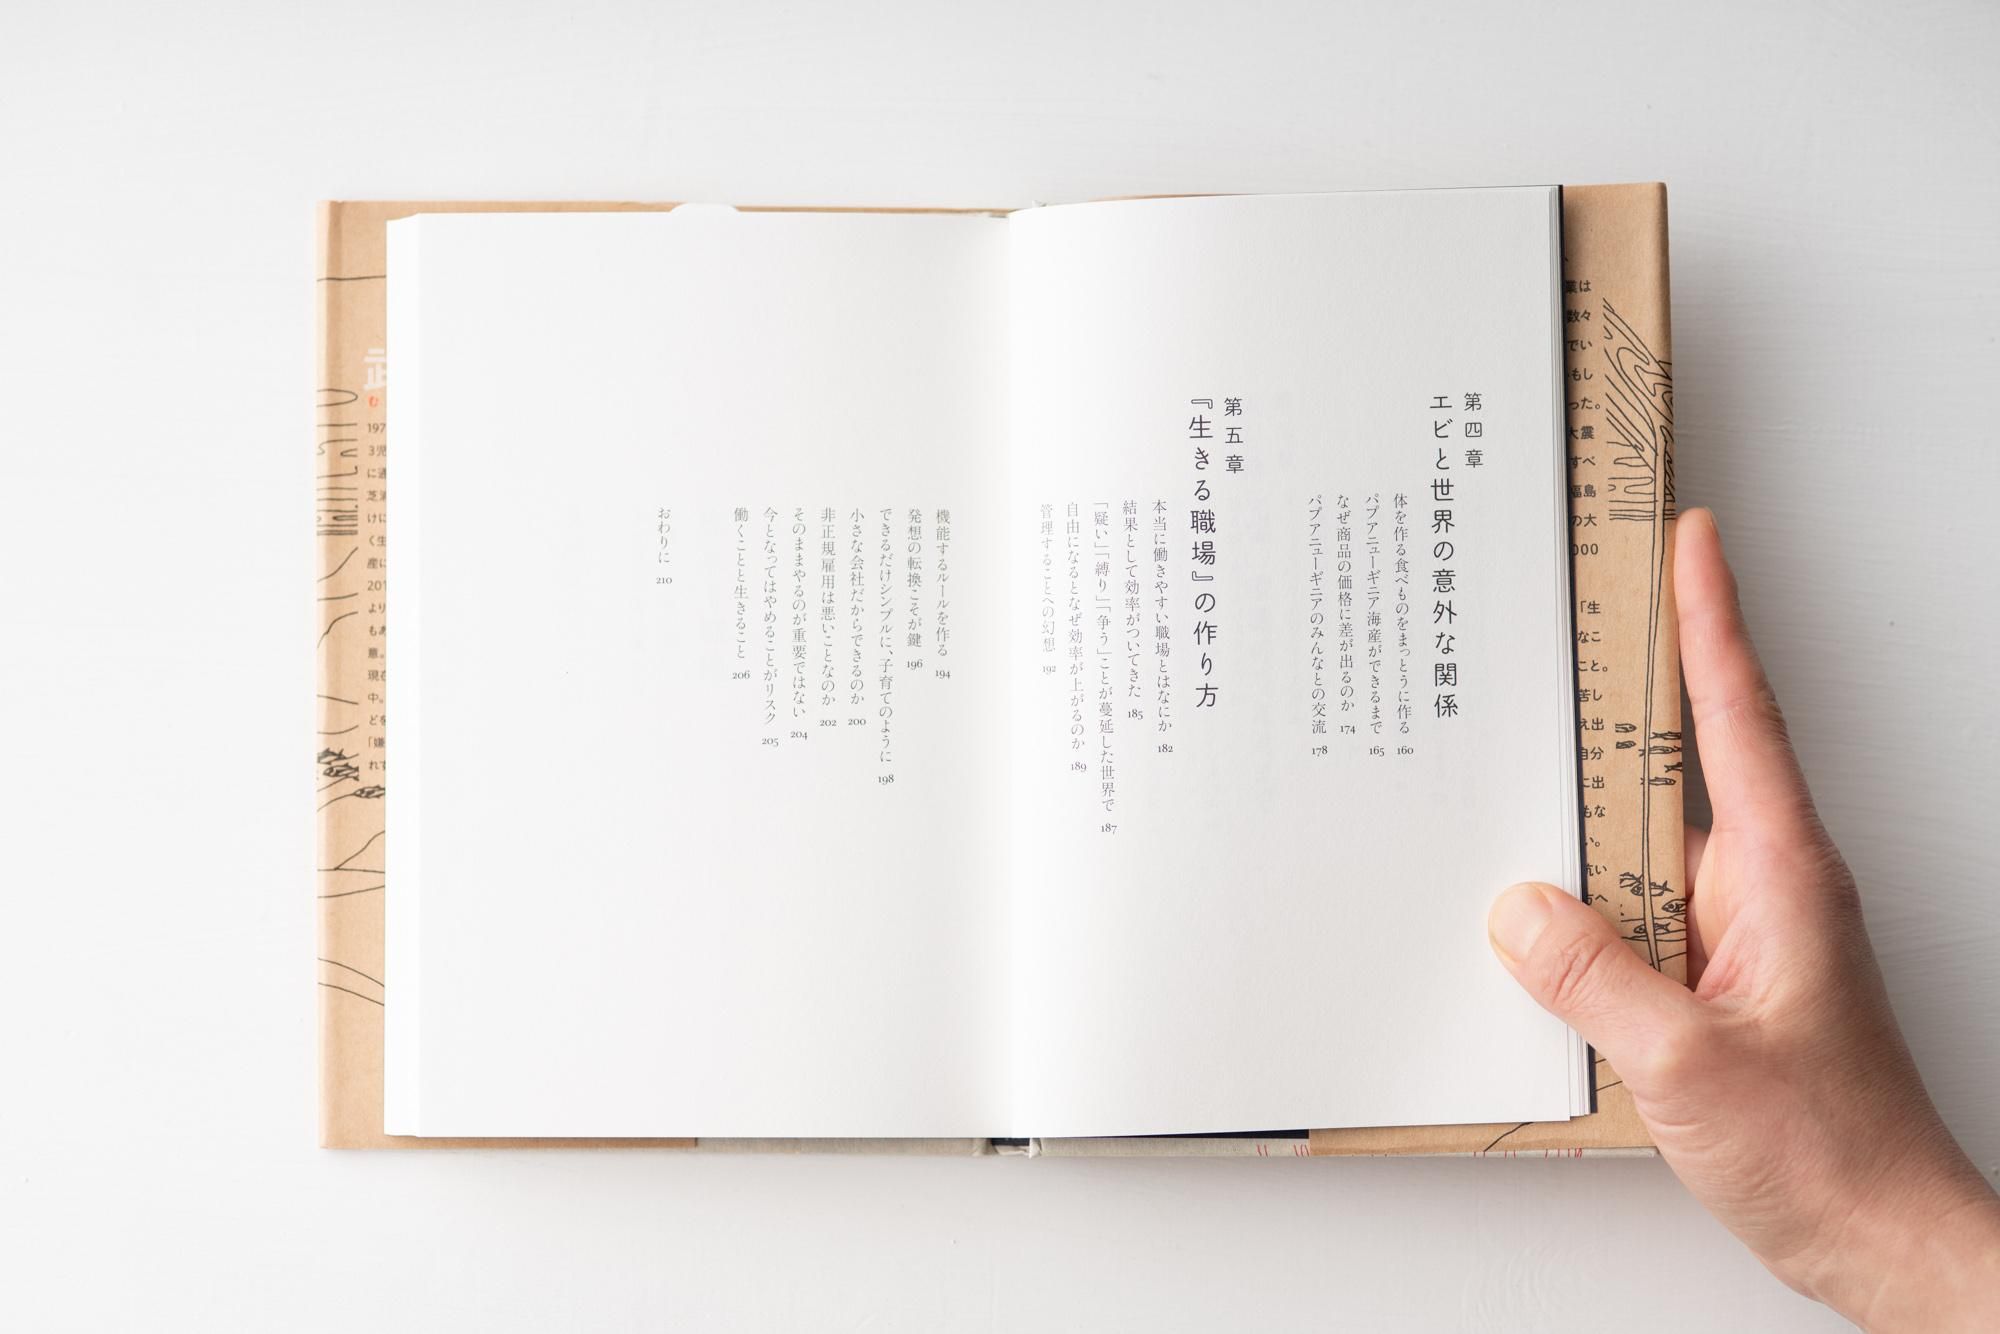 第四章
エビと世界の意外な関係
体を作る食べものをまっとうに作る 160
パプアニューギニア海産ができるまで 165
なぜ商品の価格に差が出るのか 174
パプアニューギニアのみんなとの交流 178
第五章
『生きる職場』の作り方
本当に働きやすい職場とはなにか 182
結果として効率がついてきた 185
「疑い」「縛り」「争う」ことが蔓延した世界で 187
自由になるとなぜ効率が上がるのか 189
管理することへの幻想 192
機能するルールを作る 194
発想の転換こそが鍵 196
できるだけシンプルに、子育てのように 198
小さな会社だからできるのか 200
非正規雇用は悪いことなのか 202
そのままやるのが重要ではない 204
今となってはやめることがリスク 205
働くことと生きること 206
おわりに 210